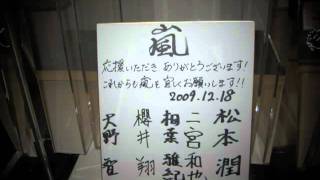 嵐
応援いただき ありがとうございます!
これからも嵐を宜しくお願いします!!
2009.12.18
松本 潤
二宮和也
相葉雅紀
櫻井 翔
大野 智